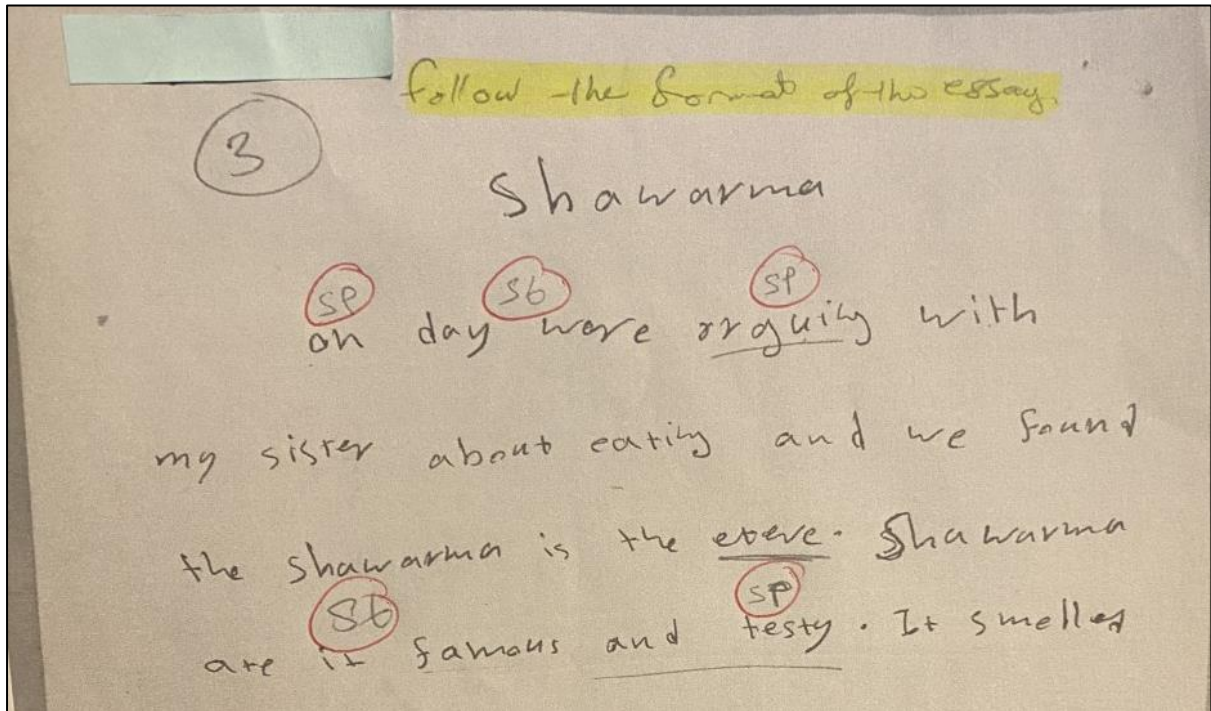 follow the format of the essay.
3
Shawarma
SP St SP
on day were rrguing with
my sister about eating and we found
the shawarma is the eteve. Shawarma
St SP
are it famous and testy. It smelled